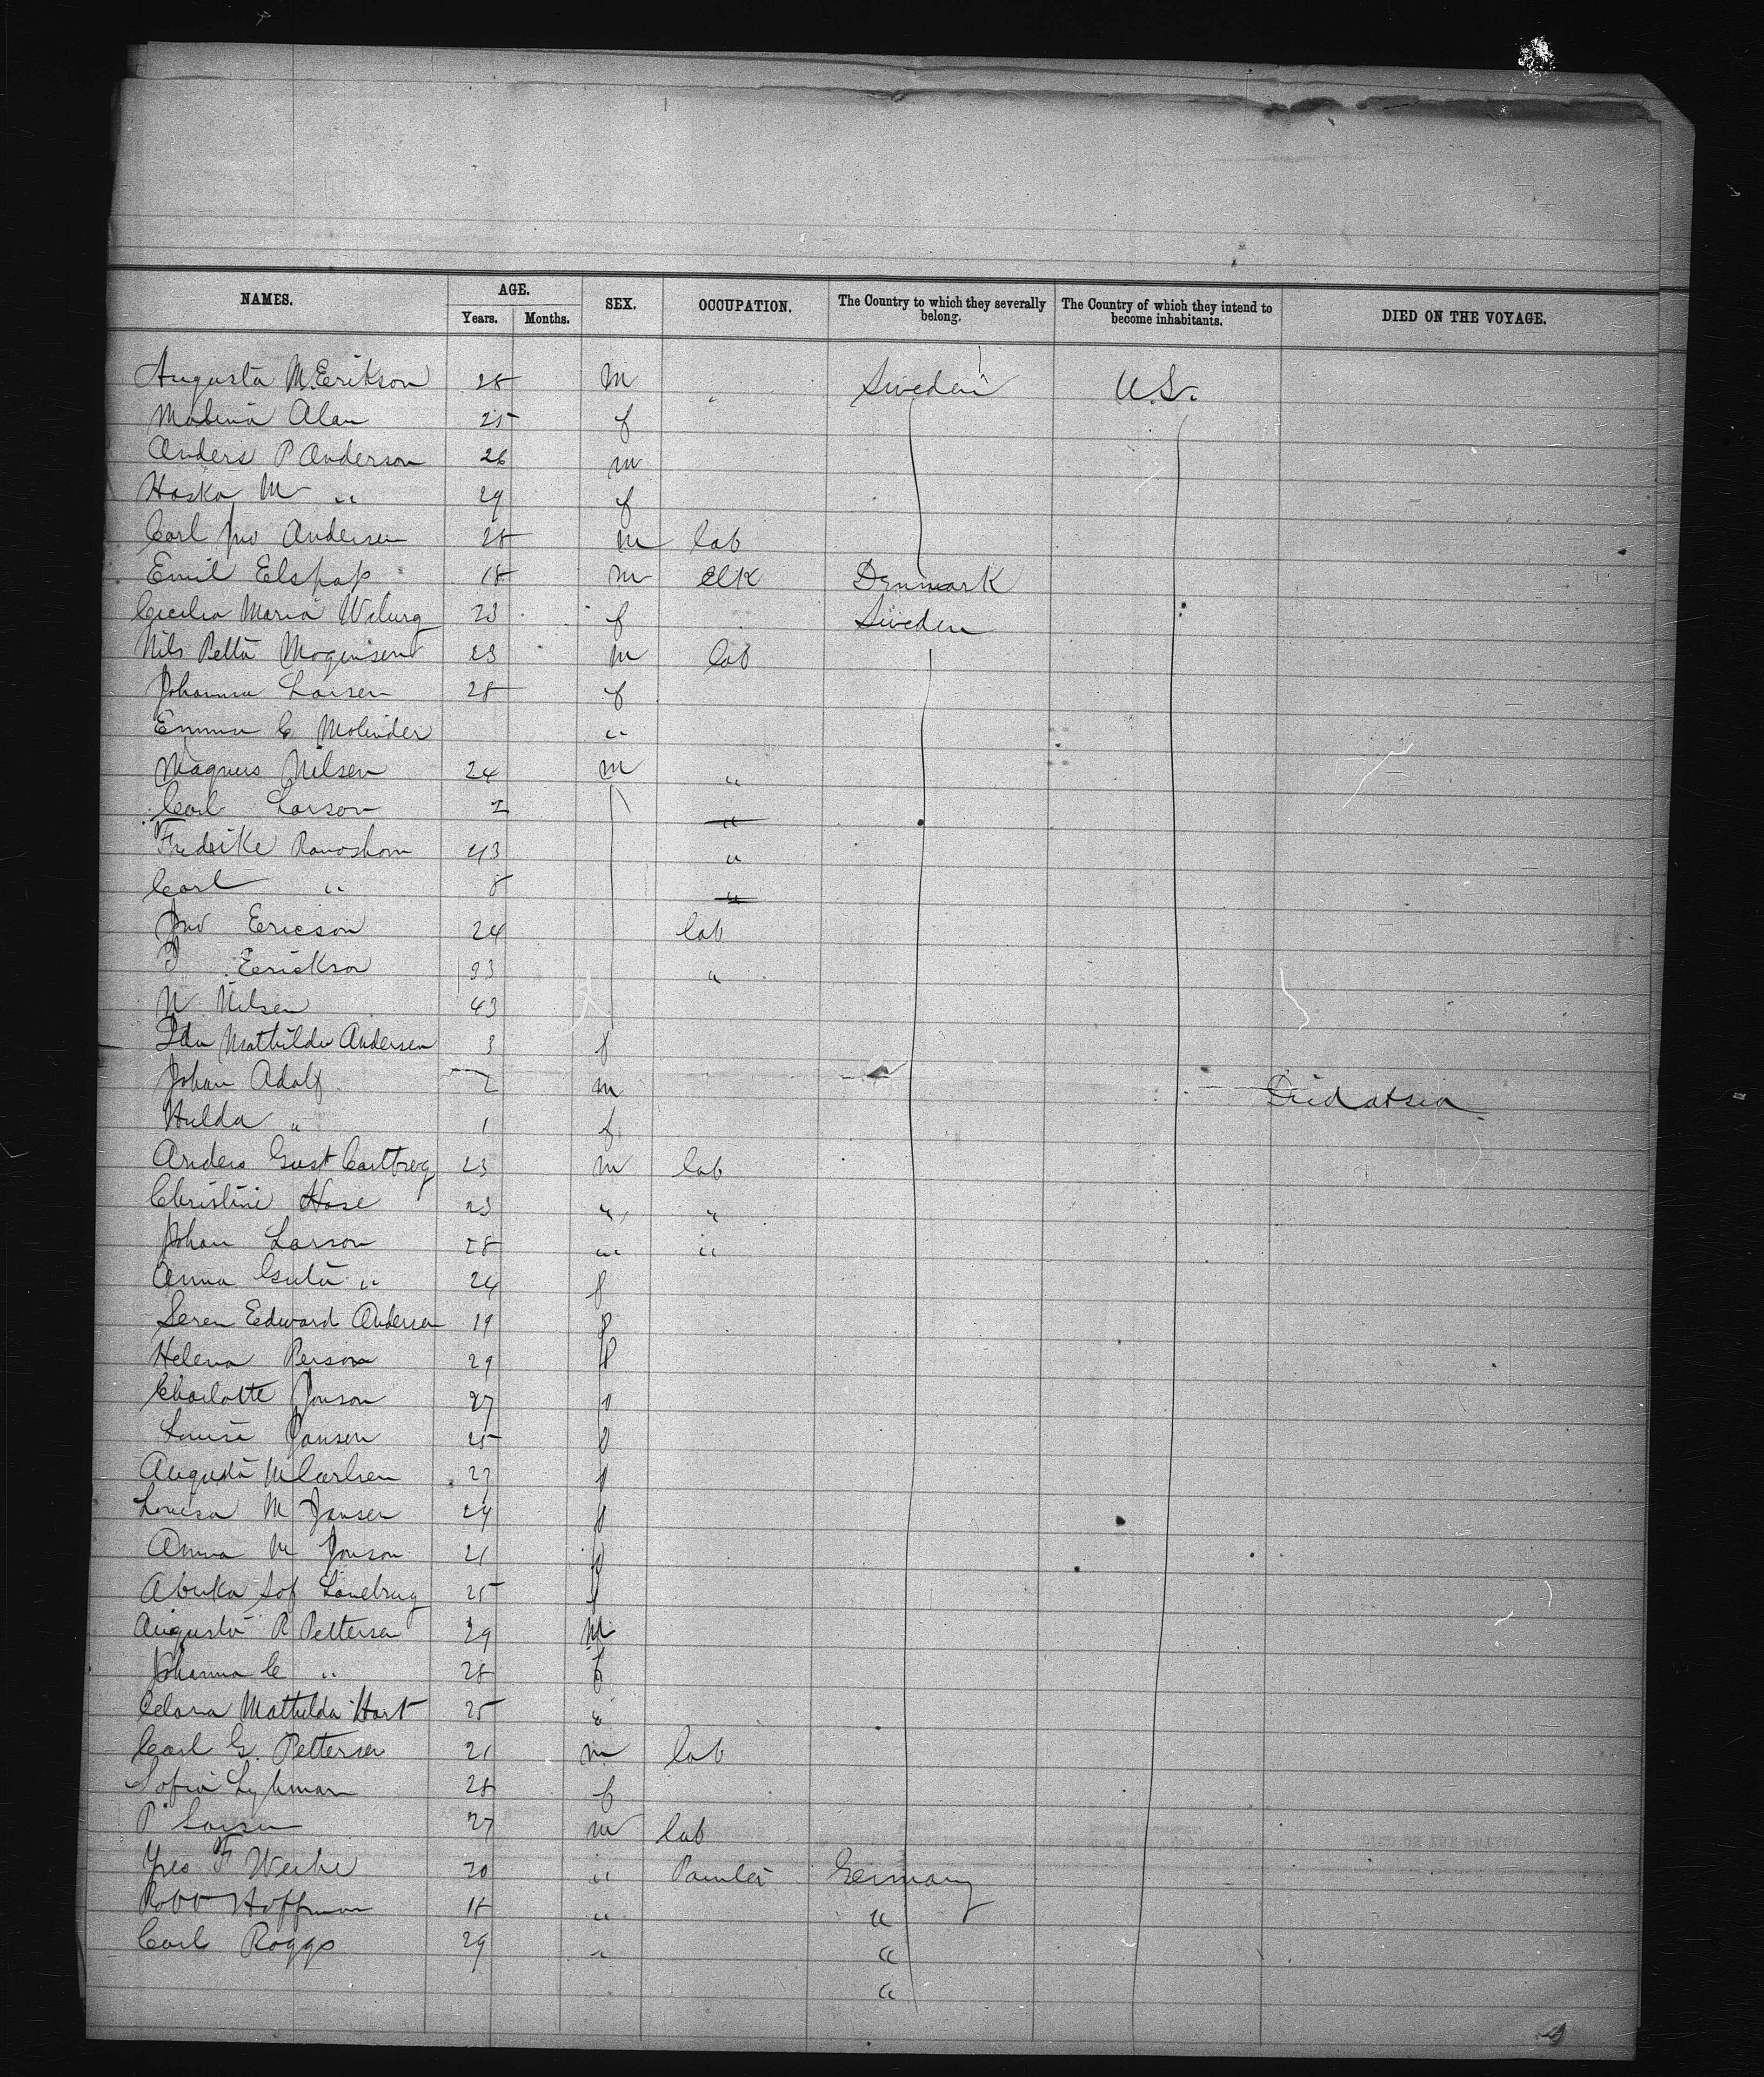 NAMES. AGE. SEX. OCCUPATION. The Country to which they severally belong. The Country of which they intend to become inhabitants. DIED ON THE VOYAGE.
Years. Months.
Augusta M. Erikson 28 m Sweden U.S.
Malvina Alan 25 f
Anders P Anderson 26 m
Haska M " 29 f
Carl Jno Andersen 28 m lab
Emil Elspap 18 m Clk Denmark
Cecilia Maria Wiburg 23 f Sweden
Nils Petta Mogensen 23 m lab
Johanna Larsen 28 f
Emma C Molinder "
Magnus Nilsen 24 m "
Carl Larson 2 "
Fredrike 43 "
Carl " 8 "
Jno Ericson 24 lab
Erickson 33 "
N. Nilsen 43
Ida Mathilda Andersen 3 f
Johan Adolf 2 m Died at sea
Hulda " 1 f
Anders Gust 23 m lab
Christine Hase 23 " "
Johan Larson 28 " "
Anna " 24 f
Seren Edward Andersen 19 f
Helena Person 29 f
Charlotte Jonson 27 f
Louise Jansen 25 f
Augusta M Carlsen 27 f
Louisa M Jansen 24 f
Anna M Jonson 21 f
Sof 25 f
Augusta P Pettersen 29 m
Johanna C " 28 f
Clara Mathilda Hart 25 "
Carl G. Pettersen 21 m lab
Sofia 28 f
P Larsen 27 m lab
F 20 " Germany
Robt Hoffman 18 " "
Carl Roggo 29 " "
"